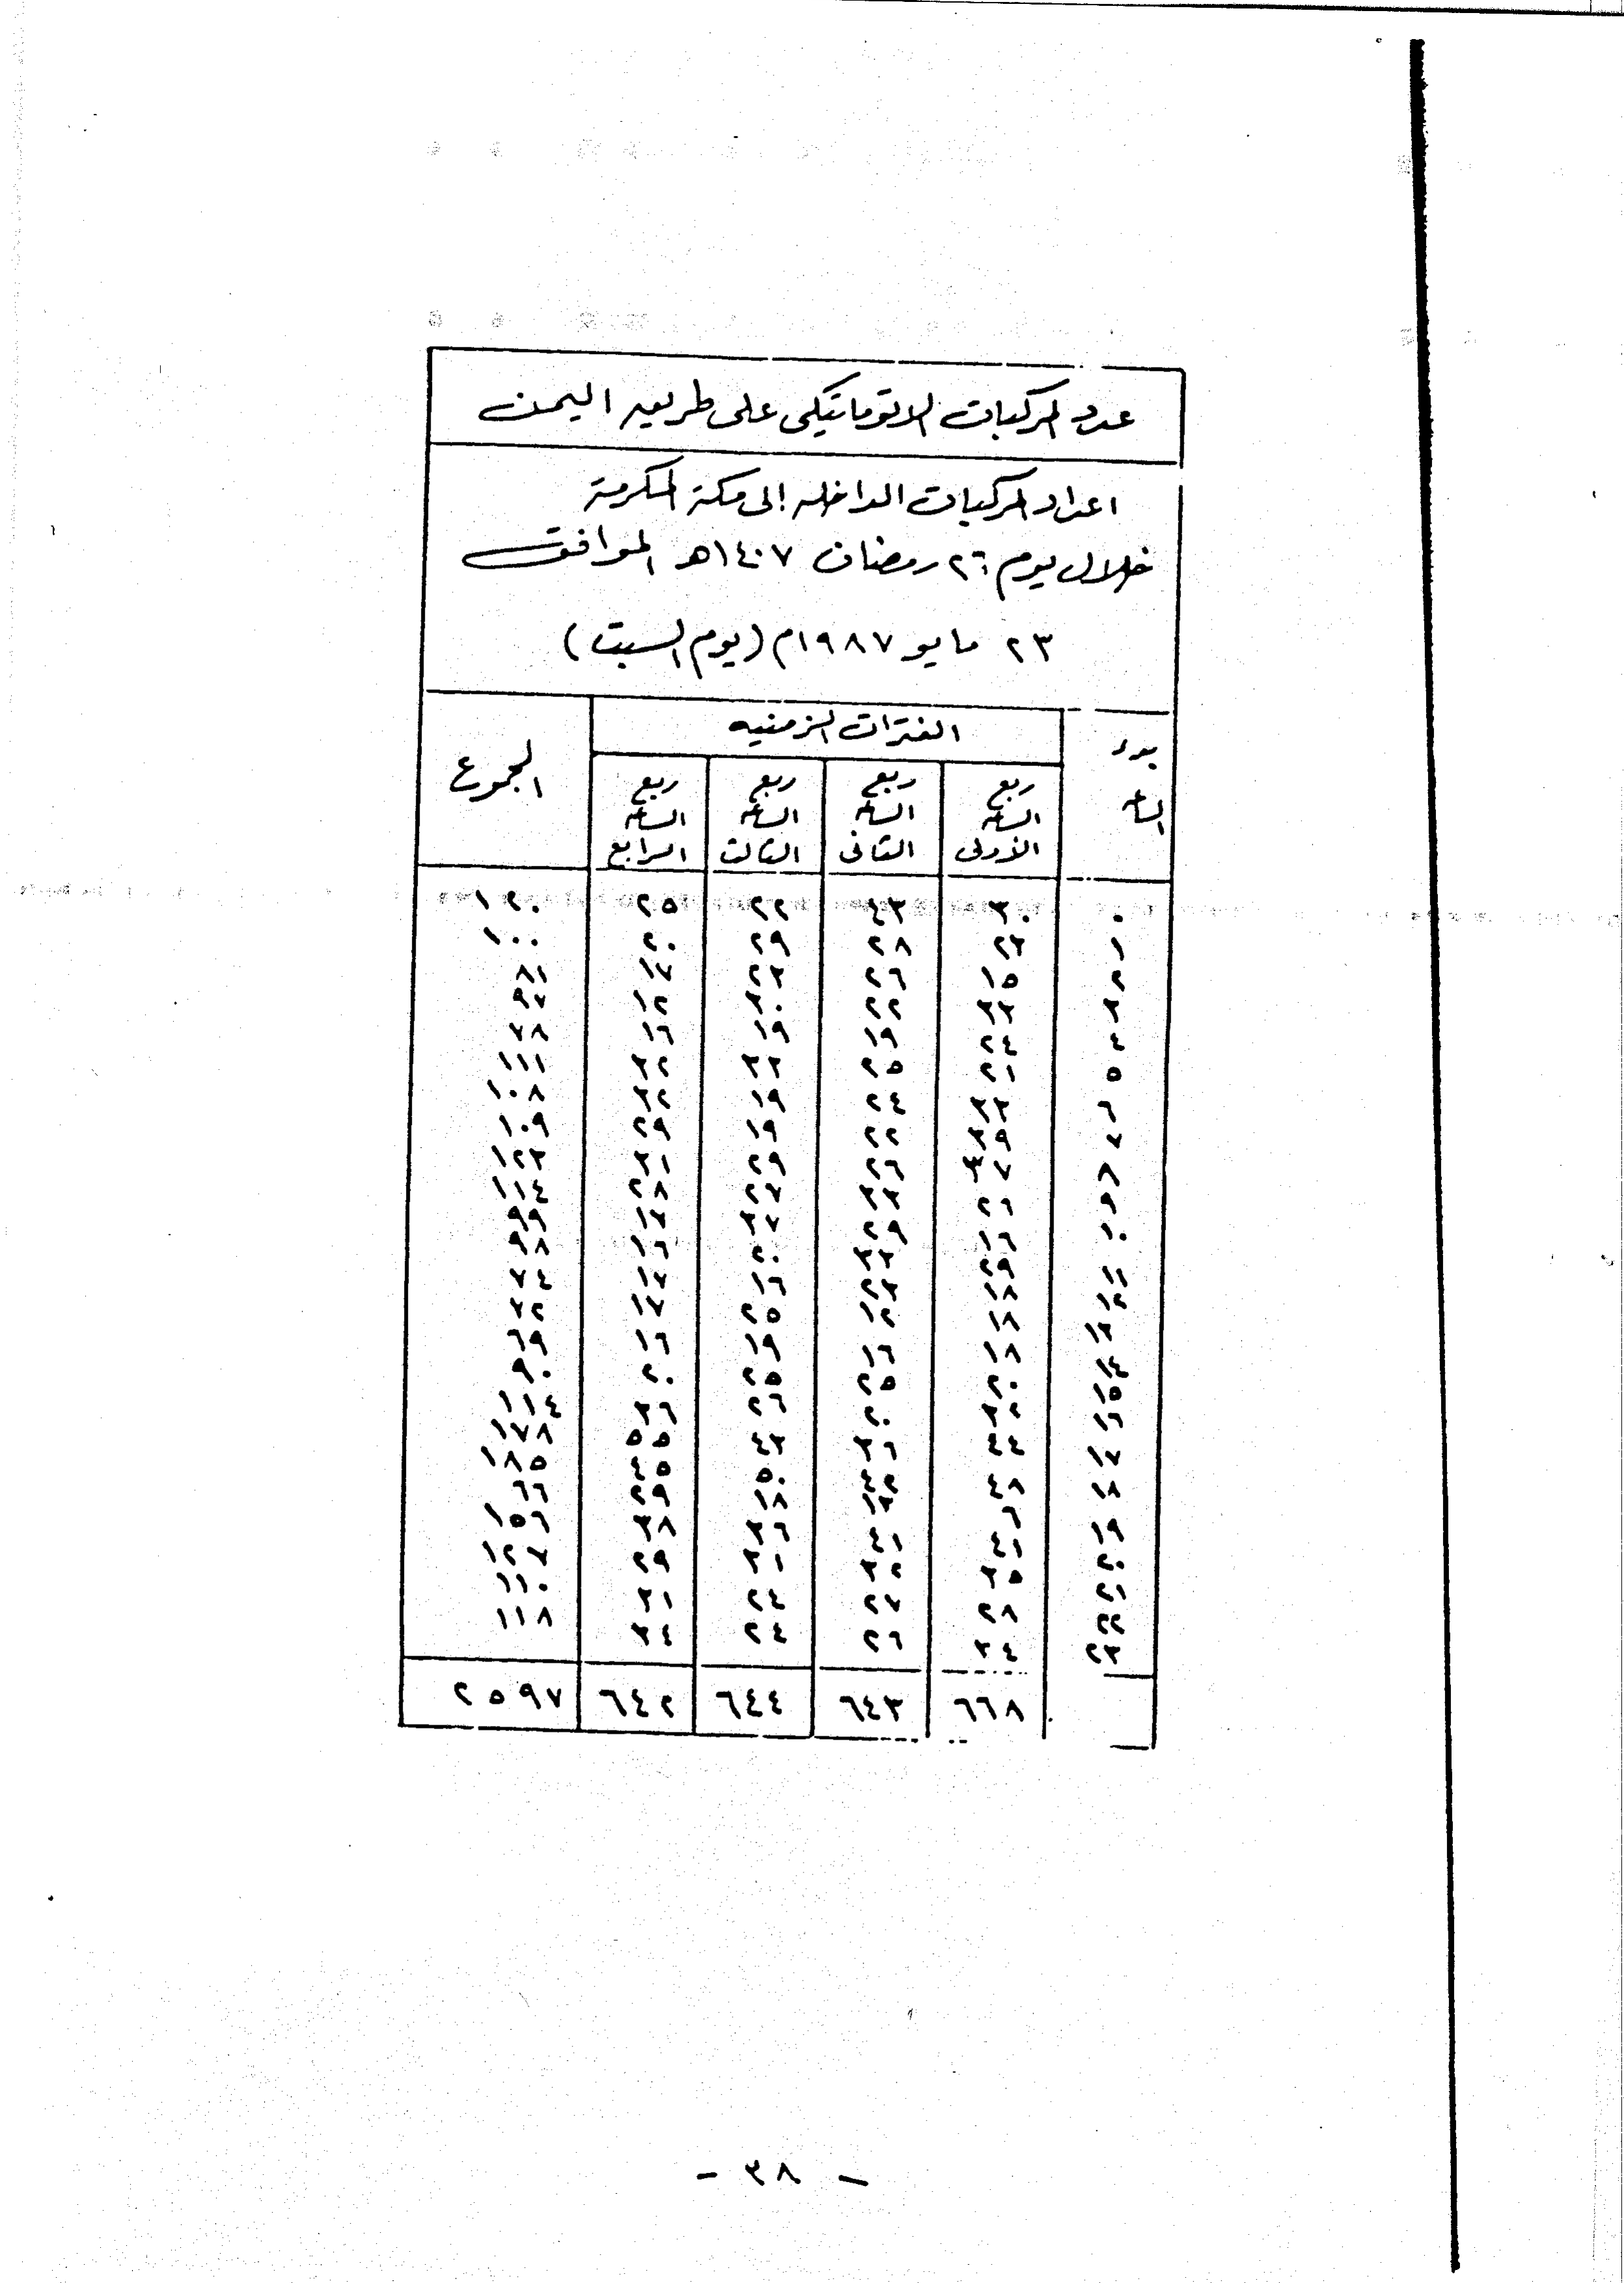 عدد المركبات الاتوماتيكى على طريق اليمن
اعداد المركبات الداخله إلى مكة المكرمة
خلال يوم ٢٦ رمضان ١٤٠٧هـ الموافق
٢٣ مايو ١٩٨٧م (يوم السبت)
بدء الساعه الفترات الزمنيه المجموع
ربع الساعه الأولى ربع الساعه الثانى ربع الساعه الثالث ربع الساعه الرابع
٠ ٣٠ ٤٣ ٢٢ ٢٥ ١٢٠
١ ٢٣ ٢٨ ٢٩ ٢٠ ١٠٠
٢ ١٥ ٢٦ ٢٣ ١٧ ٨١
٣ ٣٣ ٢٢ ٣٠ ١٢ ٩٧
٤ ٢٤ ١٩ ١٩ ١٦ ٧٨
٥ ٢١ ٢٥ ٣٣ ٣٢ ١١١
٦ ٣٣ ٢٤ ١٩ ٣٢ ١٠٨
٧ ٣٩ ٢٢ ١٩ ٢٩ ١٠٩
٨ ٣٧ ٢٦ ٢٩ ٣١ ١٢٣
٩ ٢٦ ٣٣ ٢٧ ٢٨ ١١٤
١٠ ١٦ ٢٩ ٣٧ ١٧ ٩٩
١١ ٢٩ ٣٣ ٢٠ ١٦ ٩٨
١٢ ١٨ ٢٣ ١٦ ١٧ ٧٤
١٣ ١٨ ١٢ ٢٥ ١٧ ٧٢
١٤ ١٨ ١٦ ١٩ ١٦ ٦٩
١٥ ٢٠ ٢٥ ٢٥ ٢٠ ٩٠
١٦ ٣٢ ٢٠ ٢٦ ٣٦ ١١٤
١٧ ٤٤ ٣٦ ٤٣ ٥٥ ١٧٨
١٨ ٤٨ ٤٢ ٥٠ ٤٥ ١٨٥
١٩ ٦ ١٣ ١٨ ٢٩ ٦٦
٢٠ ٤١ ٤١ ٣٦ ٣٨ ١٥٦
٢١ ٣٥ ٣٢ ٣١ ٢٩ ١٢٧
٢٢ ٢٨ ٢٧ ٢٤ ٣١ ١١٠
٢٣ ٣٤ ٢٦ ٢٤ ٣٤ ١١٨
٦٦٨ ٦٤٣ ٦٤٤ ٦٤٢ ٢٥٩٧
- ٣٨ -